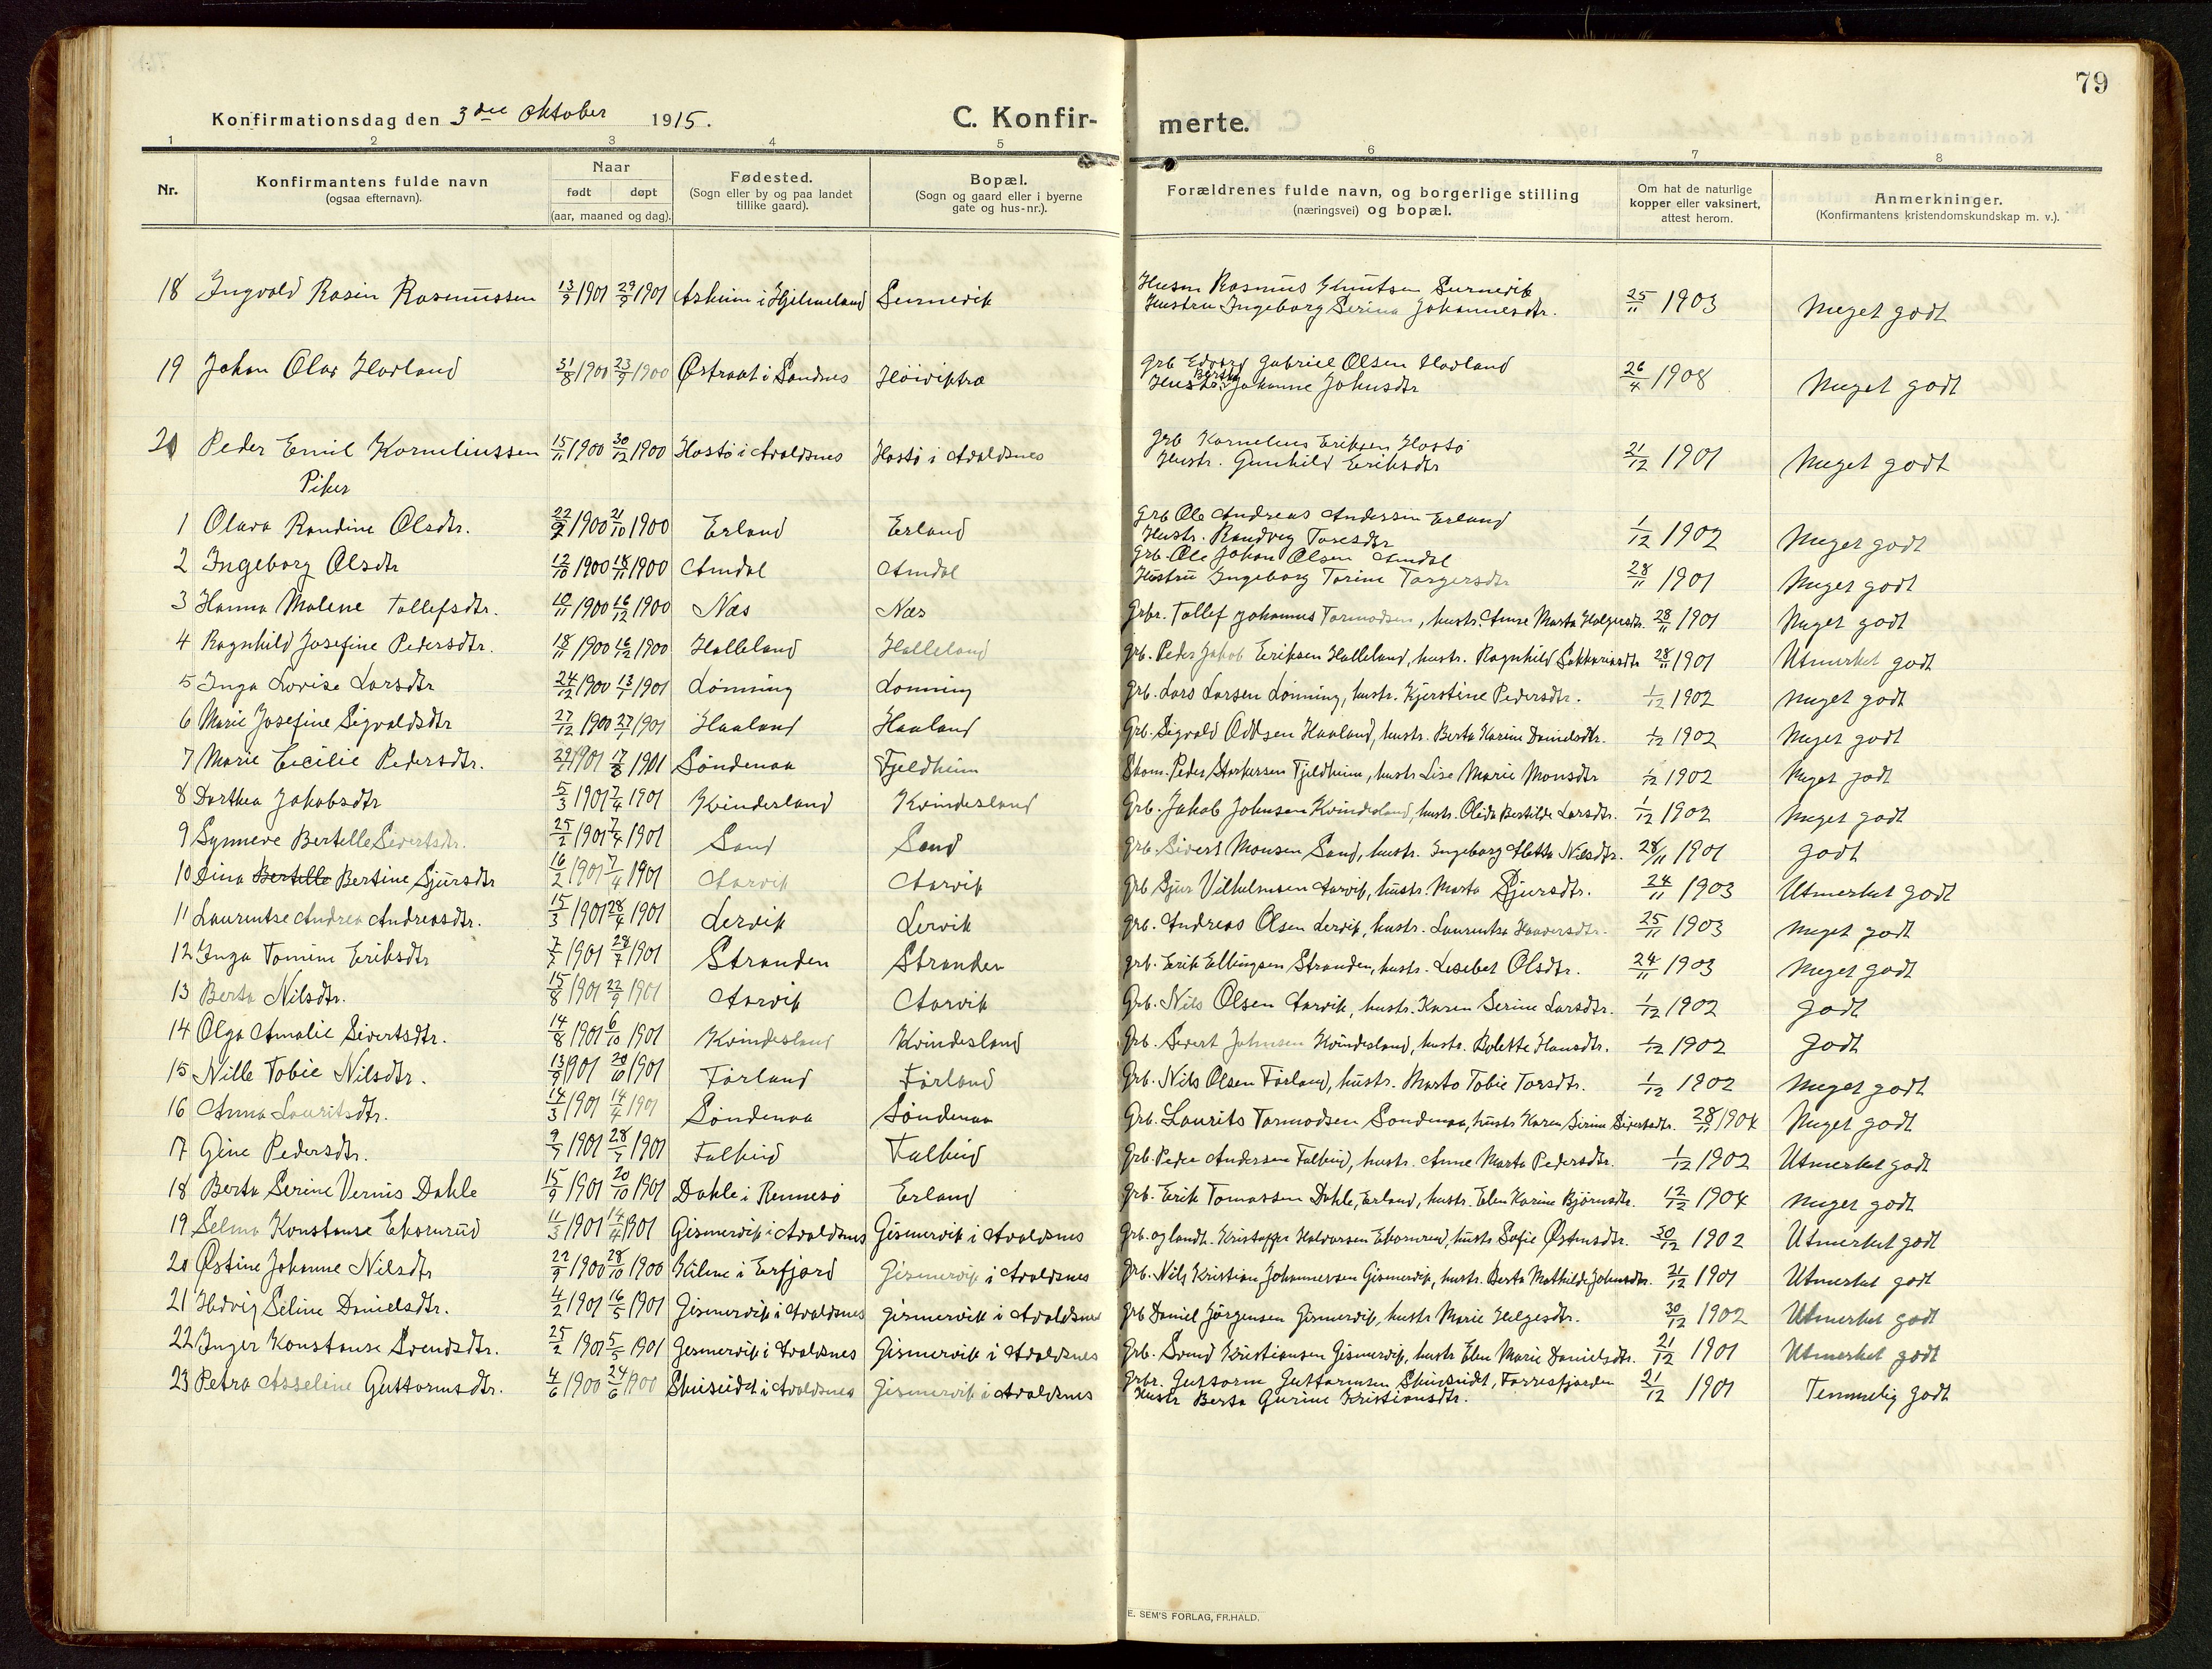 79
Konfirmationsdag den 3die Oktober 1915.
C. Konfir-
merte.
1 2 3 4 5 6 7 8
Nr.
Konfirmantens fulde navn
(ogsaa efternavn).
Naar
født døpt
(aar, maaned og dag).
Fødested.
(Sogn eller by og paa landet
tillike gaard).
Bopæl.
(Sogn og gaard eller i byerne
gate og hus-nr.).
Forældrenes fulde navn, og borgerlige stilling
(næringsvei) og bopæl.
Om hat de naturlige
kopper eller vaksinert,
attest herom.
Anmerkninger.
(Konfirmantens kristendomskundskap m. v.).
18 Ingvald Rasin Rasmussen 13/9 1901 29/9 1901 i Hjelmeland
Husm Rasmus Knutsen
Hustru Ingeborg Serina Johannesdtr. 25/11 1903 Meget godt
19 Johan Olav Havland 31/8 1900 23/9 1900 Østraat i Sandnes
Grb Edvard Gabriel Olsen Havland
Hustr. Berta Johanne Johnsdtr 26/4 1908 Meget godt
20 Peder Emil Korneliussen 15/11 1900 30/12 1900 Hastø i Avaldsnes Hastø i Avaldsnes
Grb Kornelius Eriksen Hastø
Hustr. Gunhild Eriksdtr 21/12 1901 Meget godt
Piker
1 Olava Randine Olsdtr. 22/9 1900 21/10 1900 Erland Erland
Grb Ole Andreas Andersen Erland
Hustr. Randveg Taresdtr 1/12 1902 Meget godt
2 Ingeborg Olsdtr 12/10 1900 18/11 1900 Amdal Amdal
Grb. Ole Johan Olsen Amdal
Hustru Ingeborg Torine Torgersdtr 28/11 1901 Meget godt
3 Hanna Malene Tollefsdtr. 10/11 1900 16/12 1900 Næs Næs Grbr. Tollef Johannes Tormodsen, hustr. Anne Marta Holgersdtr. 28/11 1901 Meget godt
4 Ragnhild Josefine Pedersdtr. 18/11 1900 16/12 1900 Halleland Halleland Grb. Peder Jakob Eriksen Halleland, hustr. Ragnhild Sakkariasdtr 28/11 1901 Utmerket godt
5 Inga Lovise Larsdtr 24/12 1900 13/1 1901 Lønning Lønning Grb. Lars Larsen Lønning, hustr. Kjerstine Pedersdtr. 1/12 1902 Meget godt
6 Marie Josefine Sigvaldsdtr 27/12 1900 27/1 1901 Haaland Haaland Grb. Sigvald Oddsen Haaland, hustr. Berta Karine Danielsdtr. 1/12 1902 Meget godt
7 Marie Cecilie Pedersdtr. 29/1 1901 17/3 1901 Søndenaa Fjeldheim Skom. Peder Storkersen Fjeldheim, hustr Lise Marie Monsdtr 1/12 1902 Meget godt
8 Dorthea Jakobsdtr 5/3 1901 7/4 1901 Kvindesland Kvindesland Grb. Jakob Johnsen Kvindesland, hustr. Olida Bertilde Larsdtr. 1/12 1902 Meget godt
9 Synneve Bertelle Sivertsdtr. 25/2 1901 7/4 1901 Sand Sand Grb. Sivert Monsen Sand, hustr. Ingeborg Netta Nilsdtr. 28/11 1901 godt
10 Dina Bertelle Bertine Sjursdtr 16/2 1901 7/4 1901 Aarvik Aarvik Grb Sjur Vilhelmsen Aarvik, hustr. Marta Sjursdtr. 24/11 1903 Utmerket godt
11 Laurentse Andrea Andreasdtr. 15/3 1901 28/4 1901 Lervik Lervik Grb. Andreas Olsen Lervik, hustr. Laurentsa Haaversdtr. 25/11 1903 Meget godt
12 Inga Tomine Eriksdtr 1901 28/7 1901 Stranden Stranden Grb. Erik Ellingsen Stranden, hustr. Lesebet Olsdtr. 24/11 1903 Meget godt
13 Berta Nilsdtr. 15/8 1901 22/9 1901 Aarvik Aarvik Grb. Nils Olsen Aarvik, hustr. Karen Serine Larsdtr. 1/12 1902 godt
14 Olga Amalie Sivertsdtr. 14/8 1901 6/10 1901 Kvindesland Kvindesland Grb. Sivert Johnsen Kvindesland, hustr. Bolette Hansdtr. 1/12 1902 godt
15 Nille Tobie Nilsdtr. 13/9 1901 20/10 1901 Førland Førland Grb. Nils Olsen Førland, hustr. Marta Tobie Tarsdtr. 1/12 1902 Meget godt
16 Anna Lauritsdtr. 14/3 1901 14/4 1901 Søndenaa Søndenaa Grb. Laurits Tormodsen Søndenaa, hustr Karen Sirine Sivertsdtr. 28/11 1904 Meget godt
17 Gine Pedersdtr. 1901 28/7 1901 Falkeid Falkeid Grb. Peder Andersen Falkeid, hustr. Anne Marta Pedersdtr. 1/12 1902 Utmerket godt
18 Berta Serine Vernis Dahle 15/9 1901 20/10 1901 Dahle i Rennesø Erland Grb. Erik Tomassen Dahle, Erland, hustr. Elen Karine Bjørnsdtr. 12/12 1904 Meget godt
19 Selma Konstanse Ekornrud 11/3 1901 14/4 1901 Gismervik i Avaldsnes Gismervik i Avaldsnes Grb. og landh. Kristoffer Halvorsen Ekornrud, hustr Sofie Østensdtr. 30/12 1902 Utmerket godt
20 Østine Johanne Nilsdtr 22/9 1900 28/10 1900 i Erfjord Gismervik i Avaldsnes Grb. Nils Kristian Johannessen Gismervik, hustr. Berta Mathilde Johnsdtr. 21/12 1901 Utmerket godt
21 Hedvig Seline Danielsdtr. 4/2 1901 16/5 1901 Gismervik i Avaldsnes Gismervik i Avaldsnes Grb Daniel Jørgensen Gismervik, hustr Marie Helgesdtr. 30/12 1902 Utmerket godt
22 Inger Konstanse Svendsdtr. 25/2 1901 5/5 1901 Gismervik i Avaldsnes Gismervik i Avaldsnes Grb. Svend Kristiansen Gismervik, hustr Elen Marie Danielsdtr. 21/12 1901 Utmerket godt
23 Petra Asseline Guttormsdtr. 4/6 1900 24/6 1900 i Avaldsnes Gismervik i Avaldsnes
Grbr. Guttorm Guttormsen Førresfjorden
Hustr Berta Gurine Kristiansdtr. 21/12 1901 Temmelig godt
E. SEM'S FORLAG, FR.HALD.